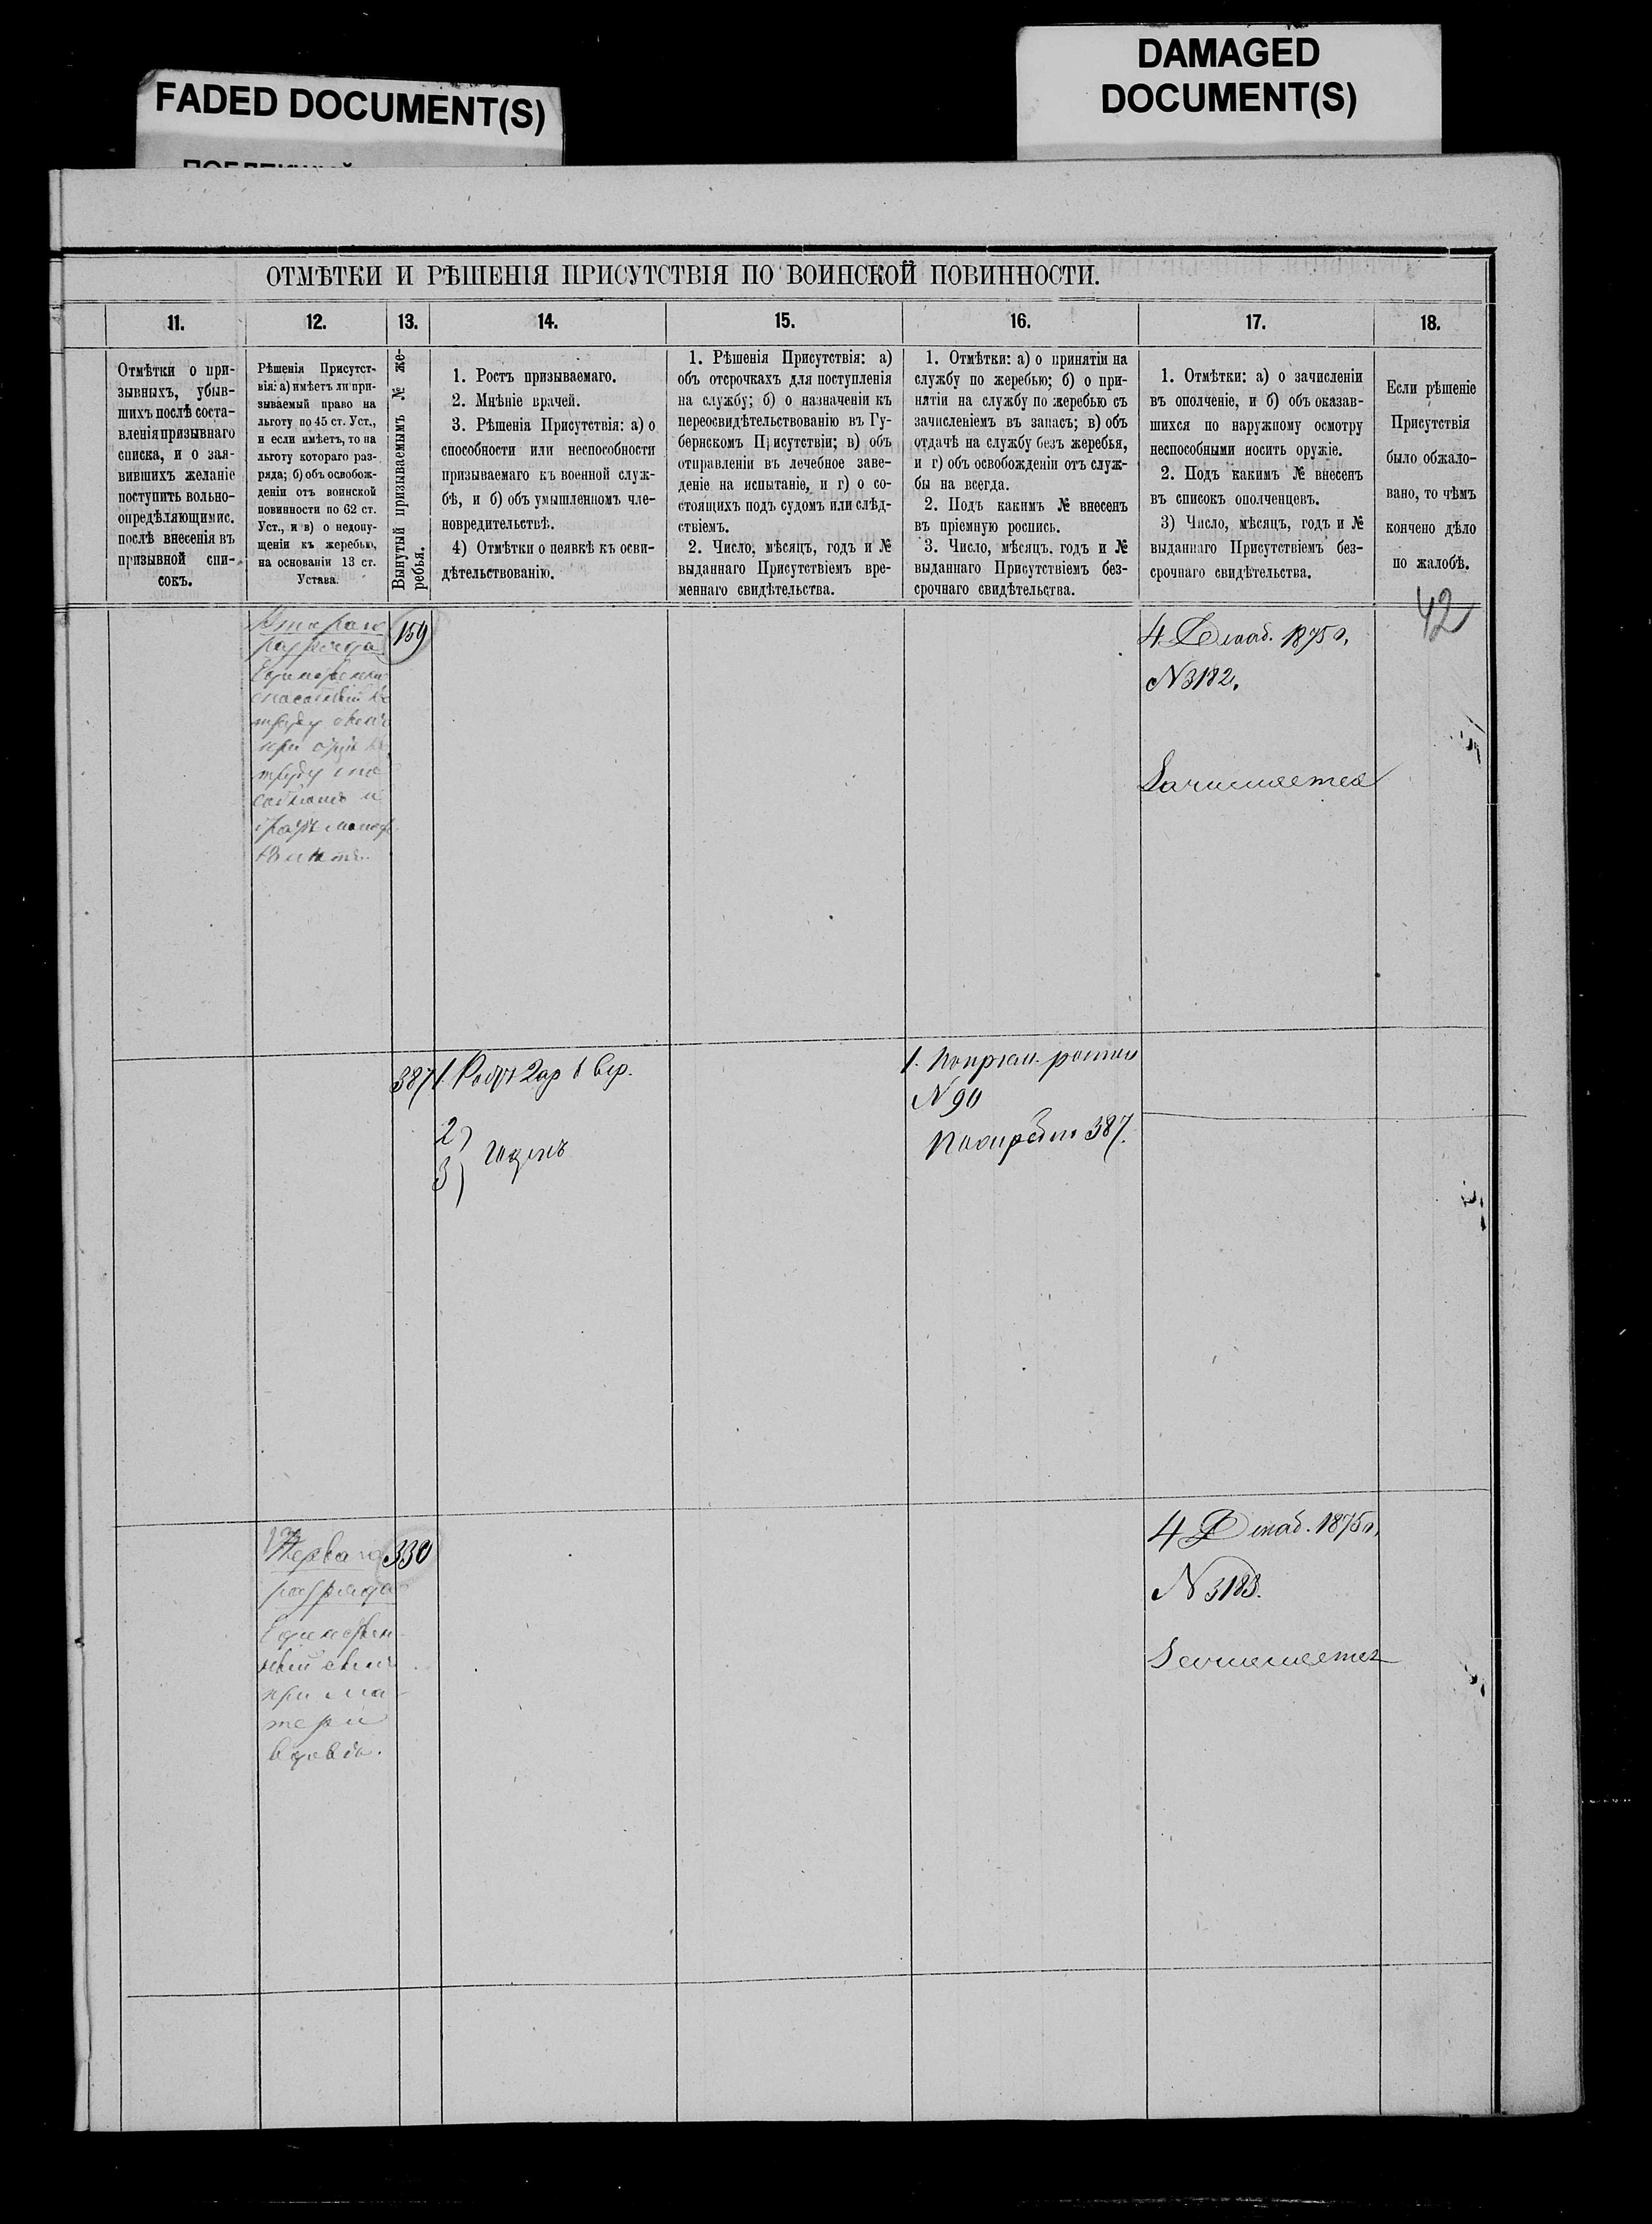 FADED DOCUMENT(S)
DAMAGED
DOCUMENT(S)
ОТМѢТКИ И РѢШЕНІЯ ПРИСУТСТВІЯ ПО ВОИНСКОЙ ПОВИННОСТИ.
11.
12.
13.
14.
15.
16.
17.
18.
Отмѣтки о при-
зывныхъ, убыв-
шихъ послѣ соста-
вленія призывнаго
списка, и о зая-
вившихъ желаніе
поступить вольно-
опредѣляющимис.
послѣ внесенія въ
призывной спи-
сокъ.
Рѣшенія Присутст-
вія: а) имѣетъ ли при-
зываемый право на
льготу по 45 ст. Уст.,
и если имѣетъ, то на
льготу котораго раз-
ряда; б) объ освобож-
деніи отъ воинской
повинности по 62 ст.
Уст., и в) о недопу-
щеніи къ жеребью,
на основаніи 13 ст.
Устава.
Вынутый призываемымъ № же-
ребья.
1. Ростъ призываемаго.
2. Мнѣніе врачей.
3. Рѣшенія Присутствія: а) о
способности или неспособности
призываемаго къ военной служ-
бѣ, и б) объ умышленномъ чле-
новредительствѣ.
4) Отмѣтки о неявкѣ къ осви-
дѣтельствованію.
1. Рѣшенія Присутствія: а)
объ отсрочкахъ для поступленія
на службу; б) о назначеніи къ
переосвидѣтельствованію въ Гу-
бернскомъ Присутствіи; в) объ
отправленіи въ лечебное заве-
деніе на испытаніе, и г) о со-
стоящихъ подъ судомъ или слѣд-
ствіемъ.
2. Число, мѣсяцъ, годъ и №
выданнаго Присутствіемъ вре-
меннаго свидѣтельства.
1. Отмѣтки: а) о принятіи на
службу по жеребью; б) о при-
нятіи на службу по жеребью съ
зачисленіемъ въ запасъ; в) объ
отдачѣ на службу безъ жеребья,
и г) объ освобожденіи отъ служ-
бы на всегда.
2. Подъ какимъ № внесенъ
въ пріемную роспись.
3. Число, мѣсяцъ, годъ и №
выданнаго Присутствіемъ без-
срочнаго свидѣтельства.
1. Отмѣтки: а) о зачисленіи
въ ополченіе, и б) объ оказав-
шихся по наружному осмотру
неспособными носить оружіе.
2. Подъ какимъ № внесенъ
въ списокъ ополченцевъ.
3) Число, мѣсяцъ, годъ и №
выданнаго Присутствіемъ без-
срочнаго свидѣтельства.
Если рѣшеніе
Присутствія
было обжало-
вано, то чѣмъ
кончено дѣло
по жалобѣ.
42
Втораго
разряда
способный къ
труду сынъ
при отцѣ къ
труду спо
собномъ и
159
4 Декаб. 1875 г.
N 3182.
Зачисляется
387
1. Ростъ 2 ар 6 вер.
2)
3) Годенъ
1. По пріем. росписи
N 90
По жеребью 387.
Перваго
разряда
Единствен-
ный сынъ
при ма-
тери
вдовѣ.
330
4 Декаб. 1875 г.
N 3183.
Зачисляется